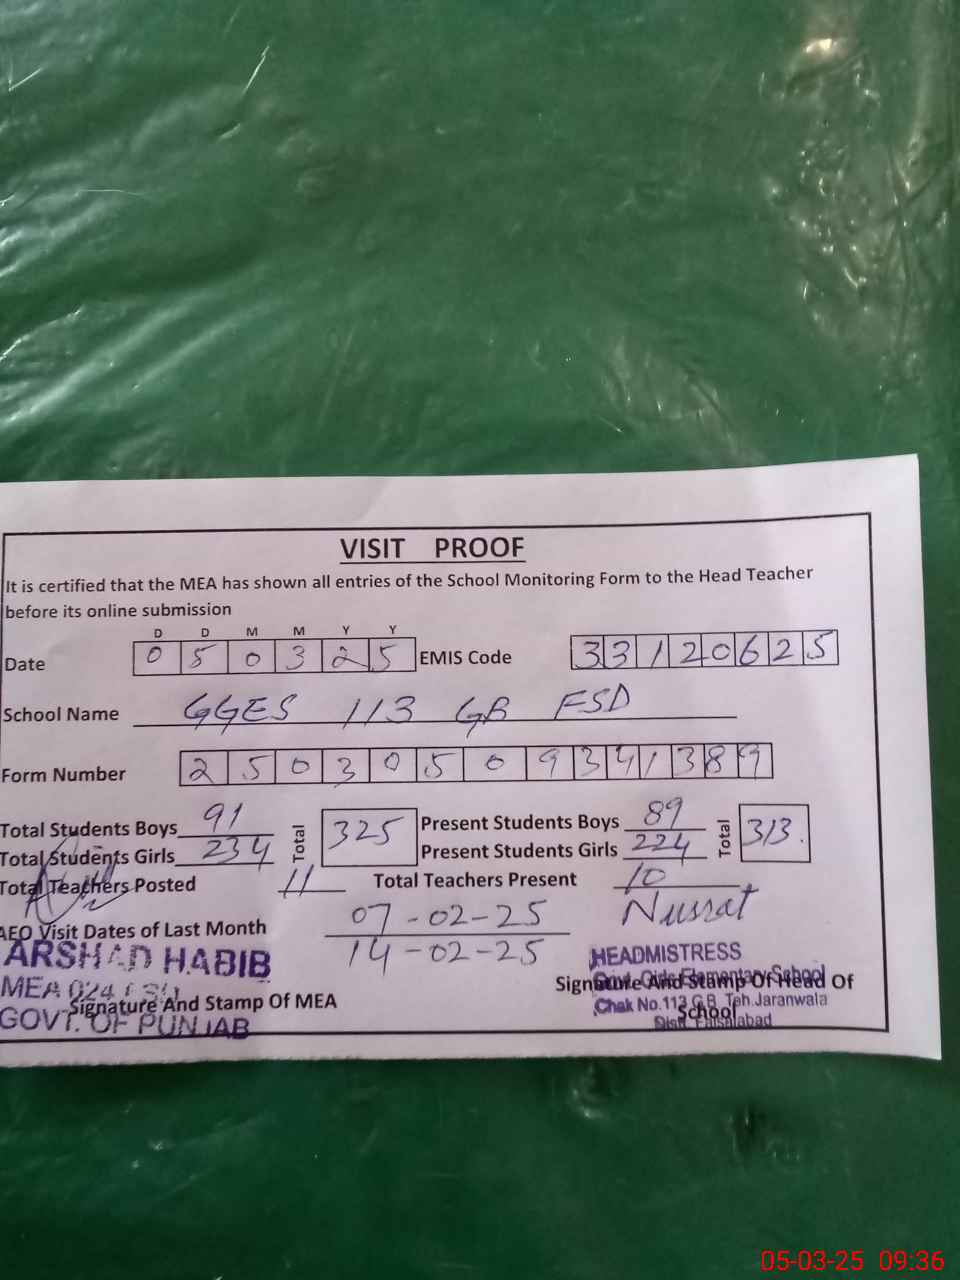 VISIT PROOF
It is certified that the MEA has shown all entries of the School Monitoring Form to the Head Teacher
before its online submission
D D M M Y Y
Date 0 5 0 3 2 5 EMIS Code 3 3 1 2 0 6 2 5
School Name GGES 113 GB FSD
Form Number 2 5 0 3 0 5 0 9 3 4 1 3 8 9
Total Students Boys 91 Total 325 Present Students Boys 89 Total 313.
Total Students Girls 234 Present Students Girls 224
Total Teachers Posted 11 Total Teachers Present 10
AEO Visit Dates of Last Month 07-02-25 Nusrat
14-02-25
ARSHAD HABIB
MEA 024
GOVT. OF PUNJAB
Signature And Stamp Of MEA
HEADMISTRESS
Govt. Girls Elementary School
Chak No.113 G.B. Teh.Jaranwala
Distt. Faisalabad
Signature And Stamp Of Head Of
School
05-03-25 09:36